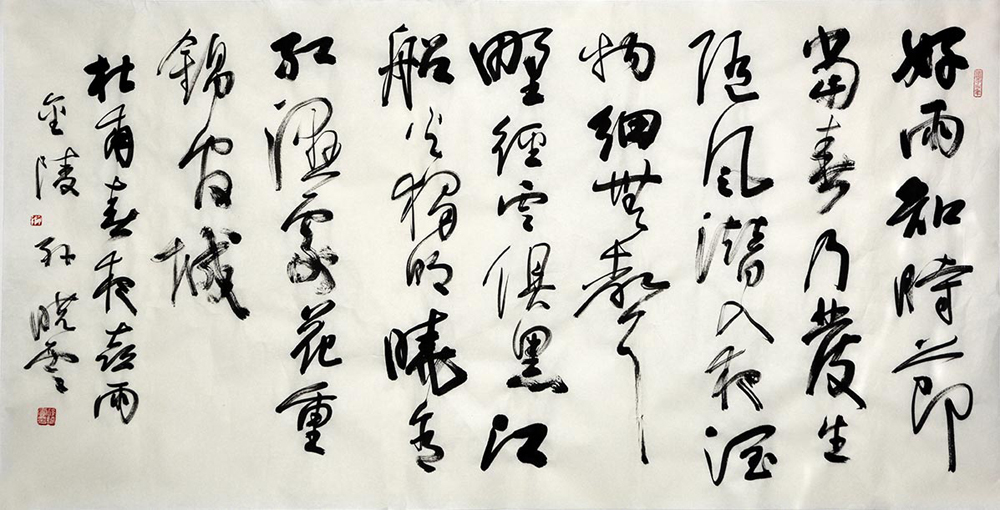 好雨知時節
當春乃發生
隨風潛入夜潤
物細無聲
野徑雲俱黑江
船火獨明曉看
紅濕處花重
錦官城
杜甫春夜喜雨
金陵 孙曉雲